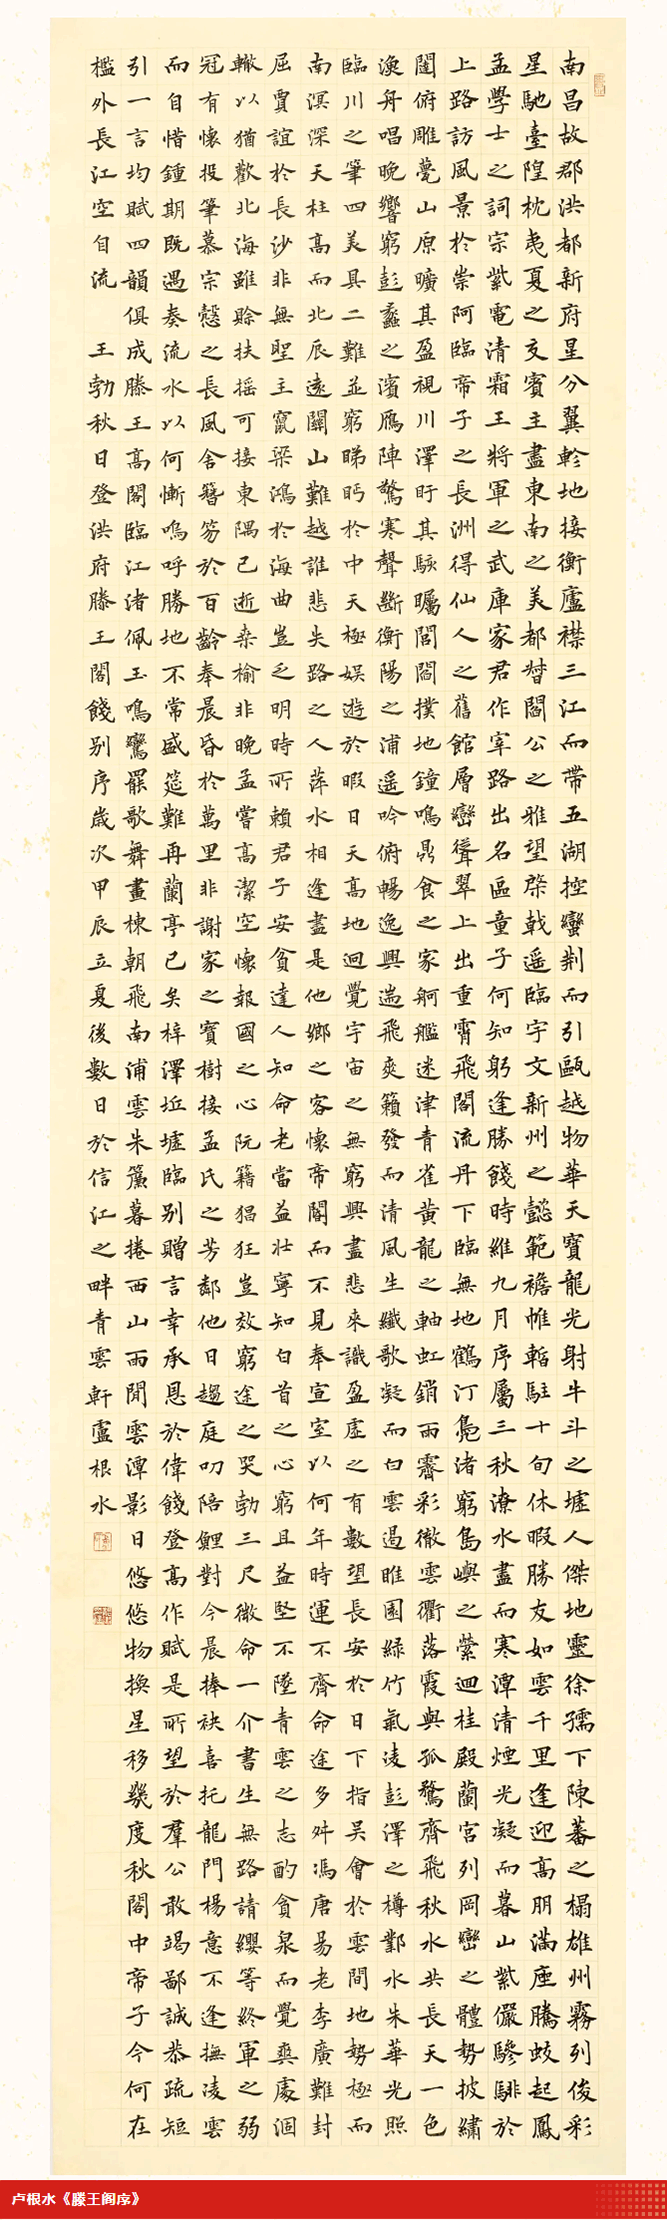 南昌故郡洪都新府星分翼軫地接衡廬襟三江而帶五湖控蠻荆而引甌越物華天寶龍光射牛斗之墟人傑地靈徐孺下陳蕃之榻雄州霧列俊彩
星馳臺隍枕夷夏之交賓主盡東南之美都督閻公之雅望棨戟遥臨宇文新州之懿範襜帷暫駐十旬休暇勝友如雲千里逢迎高朋滿座騰蛟起鳳
孟學士之詞宗紫電清霜王將軍之武庫家君作宰路出名區童子何知躬逢勝餞時維九月序屬三秋潦水盡而寒潭清煙光凝而暮山紫儼驂騑於
上路訪風景於崇阿臨帝子之長洲得仙人之舊館層巒聳翠上出重霄飛閣流丹下臨無地鶴汀鳧渚窮島嶼之縈迴桂殿蘭宫列岡巒之體勢披繡
闥俯雕甍山原曠其盈視川澤盱其駭矚閭閻撲地鐘鳴鼎食之家舸艦迷津青雀黄龍之軸虹銷雨霽彩徹雲衢落霞與孤鶩齊飛秋水共長天一色
漁舟唱晚響窮彭蠡之濱鴈陣驚寒聲斷衡陽之浦遥吟俯暢逸興遄飛爽籟發而清風生纖歌凝而白雲遏睢園緑竹氣凌彭澤之樽鄴水朱華光照
臨川之筆四美具二難並窮睇眄於中天極娱遊於暇日天高地迥覺宇宙之無窮興盡悲來識盈虚之有數望長安於日下指吴會於雲間地勢極而
南溟深天柱高而北辰遠關山難越誰悲失路之人萍水相逢盡是他鄉之客懷帝閽而不見奉宣室以何年時運不齊命途多舛馮唐易老李廣難封
屈賈誼於長沙非無聖主竄梁鴻於海曲豈乏明時所賴君子安貧達人知命老當益壯寧知白首之心窮且益堅不墜青雲之志酌貪泉而覺爽處涸
轍以猶歡北海雖賒扶摇可接東隅已逝桑榆非晚孟嘗高潔空懷報國之心阮籍猖狂豈效窮途之哭勃三尺微命一介書生無路請纓等終軍之弱
冠有懷投筆慕宗慤之長風舍簪笏於百齡奉晨昏於萬里非謝家之寶樹接孟氏之芳鄰他日趨庭叨陪鯉對今晨捧袂喜托龍門楊意不逢撫凌雲
而自惜鍾期既遇奏流水以何慚嗚呼勝地不常盛筵難再蘭亭已矣梓澤坵墟臨别贈言幸承恩於偉餞登高作賦是所望於羣公敢竭鄙誠恭疏短
引一言均賦四韻俱成滕王高閣臨江渚佩玉鳴鸞罷歌舞畫棟朝飛南浦雲朱簾暮捲西山雨閒雲潭影日悠悠物換星移幾度秋閣中帝子今何在
檻外長江空自流 王勃秋日登洪府滕王閣餞别序歲次甲辰立夏後數日於信江之畔青雲軒盧根水
卢根水《滕王阁序》